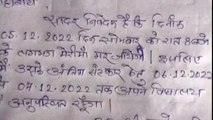 सादर निवेदन है कि दिनांक
05.12.2022 दिन सोमवार को रात 8 बजे
के लगभग मेरी माँ मर गयी थी। इसलिए
मैं उनके अंतिम संस्कार हेतु 06.12.2022
से 07.12.2022 तक अपने विद्यालय
अनुपस्थित रहूँगा।